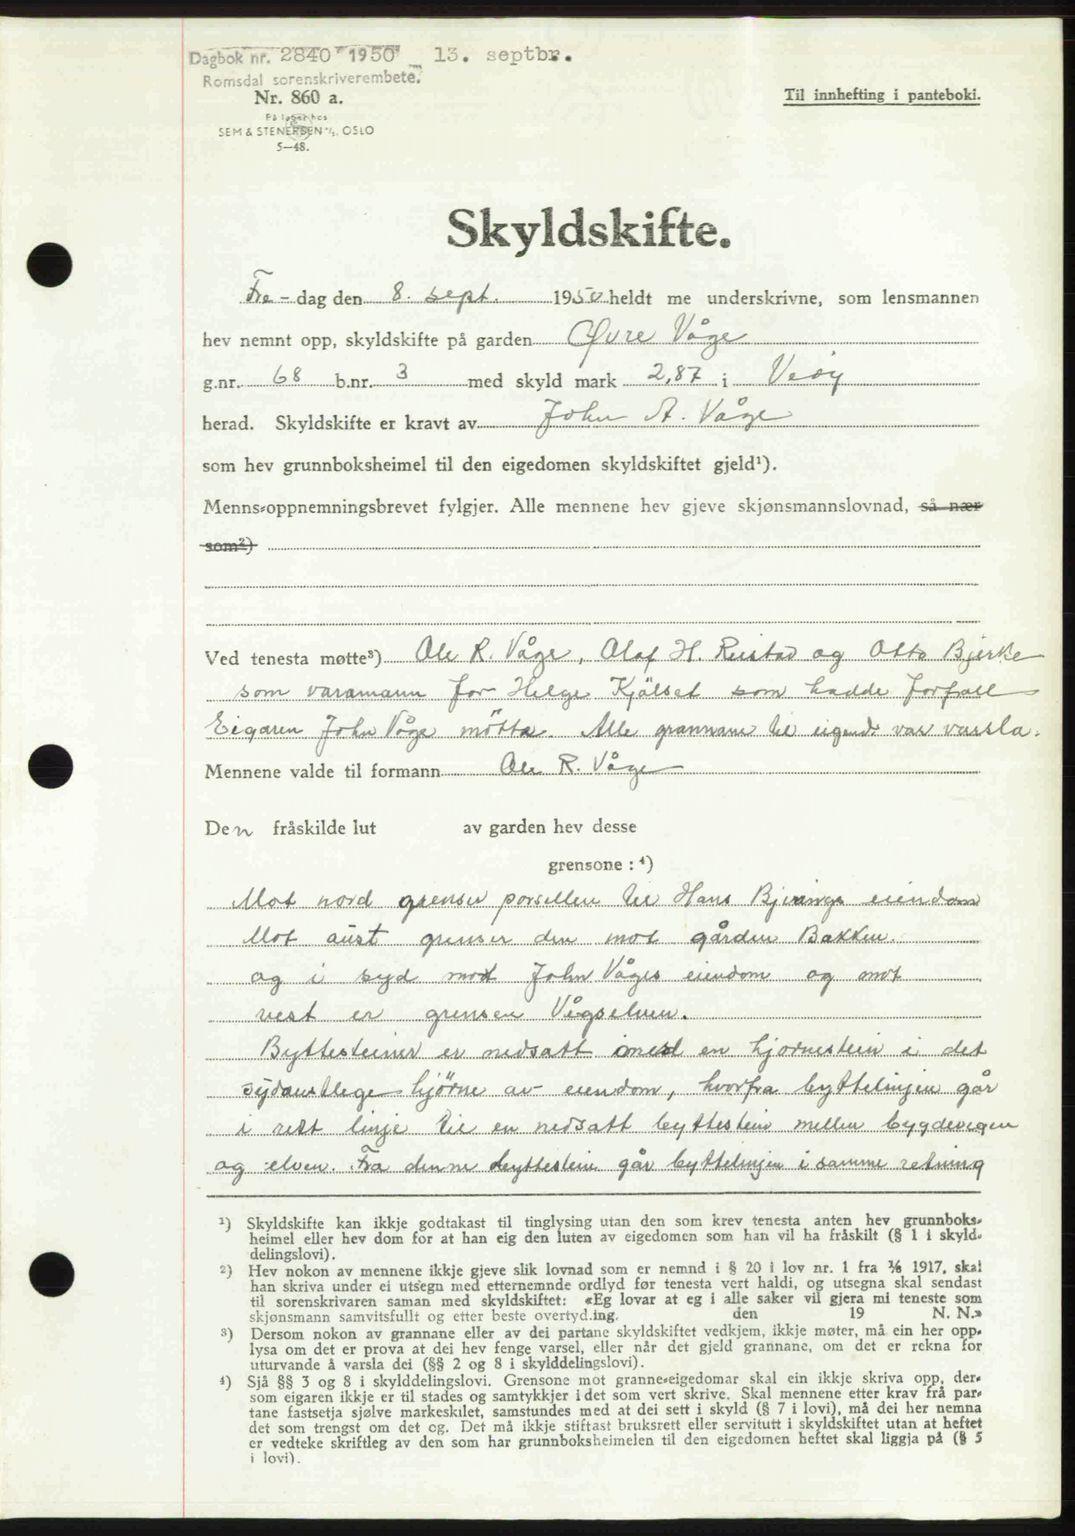 Dagbok nr. 2840 1950 13. septbr.
Romsdal sorenskriverembete.
Nr. 860 a.
Til innhefting i panteboki.
På lager hos
SEM & STENERSEN A/S, OSLO
5—48.
Skyldskifte.
Fre- dag den 8. sept. 1950 heldt me underskrivne, som lensmannen
hev nemnt opp, skyldskifte på garden Øvre Våge
g.nr. 68 b.nr. 3 med skyld mark 2,87 i Veøy
herad. Skyldskifte er kravt av John A. Våge
som hev grunnboksheimel til den eigedomen skyldskiftet gjeld¹).
Menns-oppnemningsbrevet fylgjer. Alle mennene hev gjeve skjønsmannslovnad, så nær
som²)
Ved tenesta møtte³) Ole R. Våge, Olaf H. Reistad og Otto Bjerke
som varamann for Helge Kjølset som hadde forfall
Eigaren John Våge møtte. Alle grannane til eigend. var varsla.
Mennene valde til formann Ole R. Våge
Den fråskilde lut av garden hev desse
grensone : ⁴)
Mot nord grenser porsellen til Hans eiendom
Mot aust grenser den mot gården Bakken.
og i syd mot John Våges eiendom og mot
vest er grensen Vågselven.
Byttesteiner er nedsatt med en hjørnestein i det
sydaustlege hjørne av eiendom, hvorfra byttelinjen går
i rett linje til en nedsatt byttestein mellem bygdevegen
og elven. Fra denne byttestein går byttelinjen i samme retning
¹) Skyldskifte kan ikkje godtakast til tinglysing utan den som krev tenesta anten hev grunnboks-
heimel eller hev dom for at han eig den luten av eigedomen som han vil ha fråskilt (§ 1 i skyld-
delingslovi).
²) Hev nokon av mennene ikkje gjeve slik lovnad som er nemnd i § 20 i lov nr. 1 fra ⅙ 1917, skal
han skriva under ei utsegn med etternemnde ordlyd før tenesta vert haldi, og utsegna skal sendast
til sorenskrivaren saman med skyldskiftet: «Eg lovar at eg i alle saker vil gjera mi teneste som
skjønsmann samvitsfullt og etter beste overtyding. den 19 N. N.»
³) Dersom nokon av grannane eller av dei partane skyldskiftet vedkjem, ikkje møter, må ein her opp-
lysa om det er prova at dei hev fenge varsel, eller når det gjeld grannane, om det er rekna for
uturvande å varsla dei (§§ 2 og 8 i skylddelingslovi).
⁴) Sjå §§ 3 og 8 i skylddelingslovi. Grensone mot granne-eigedomar skal ein ikkje skriva opp, der-
som eigaren ikkje er til stades og samtykkjer i det som vert skrive. Skal mennene etter krav frå par-
tane fastsetja sjølve markeskilet, samstundes med at dei sett i skyld (§ 7 i lovi), må dei her nemna
det som trengst om det og. Det må ikkje stiftast bruksrett eller servitutt i skyldskiftet utan at heftet
er vedteke skriftleg av den som har grunnboksheimelen til den eigedomen heftet skal liggja på (§ 5
i lovi).